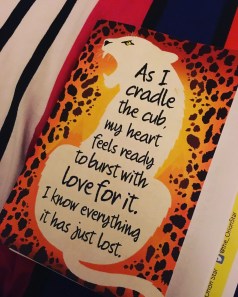 As I
cradle
the cub,
my heart
feels ready
to burst with
love for it.
I know everything
it has just lost.